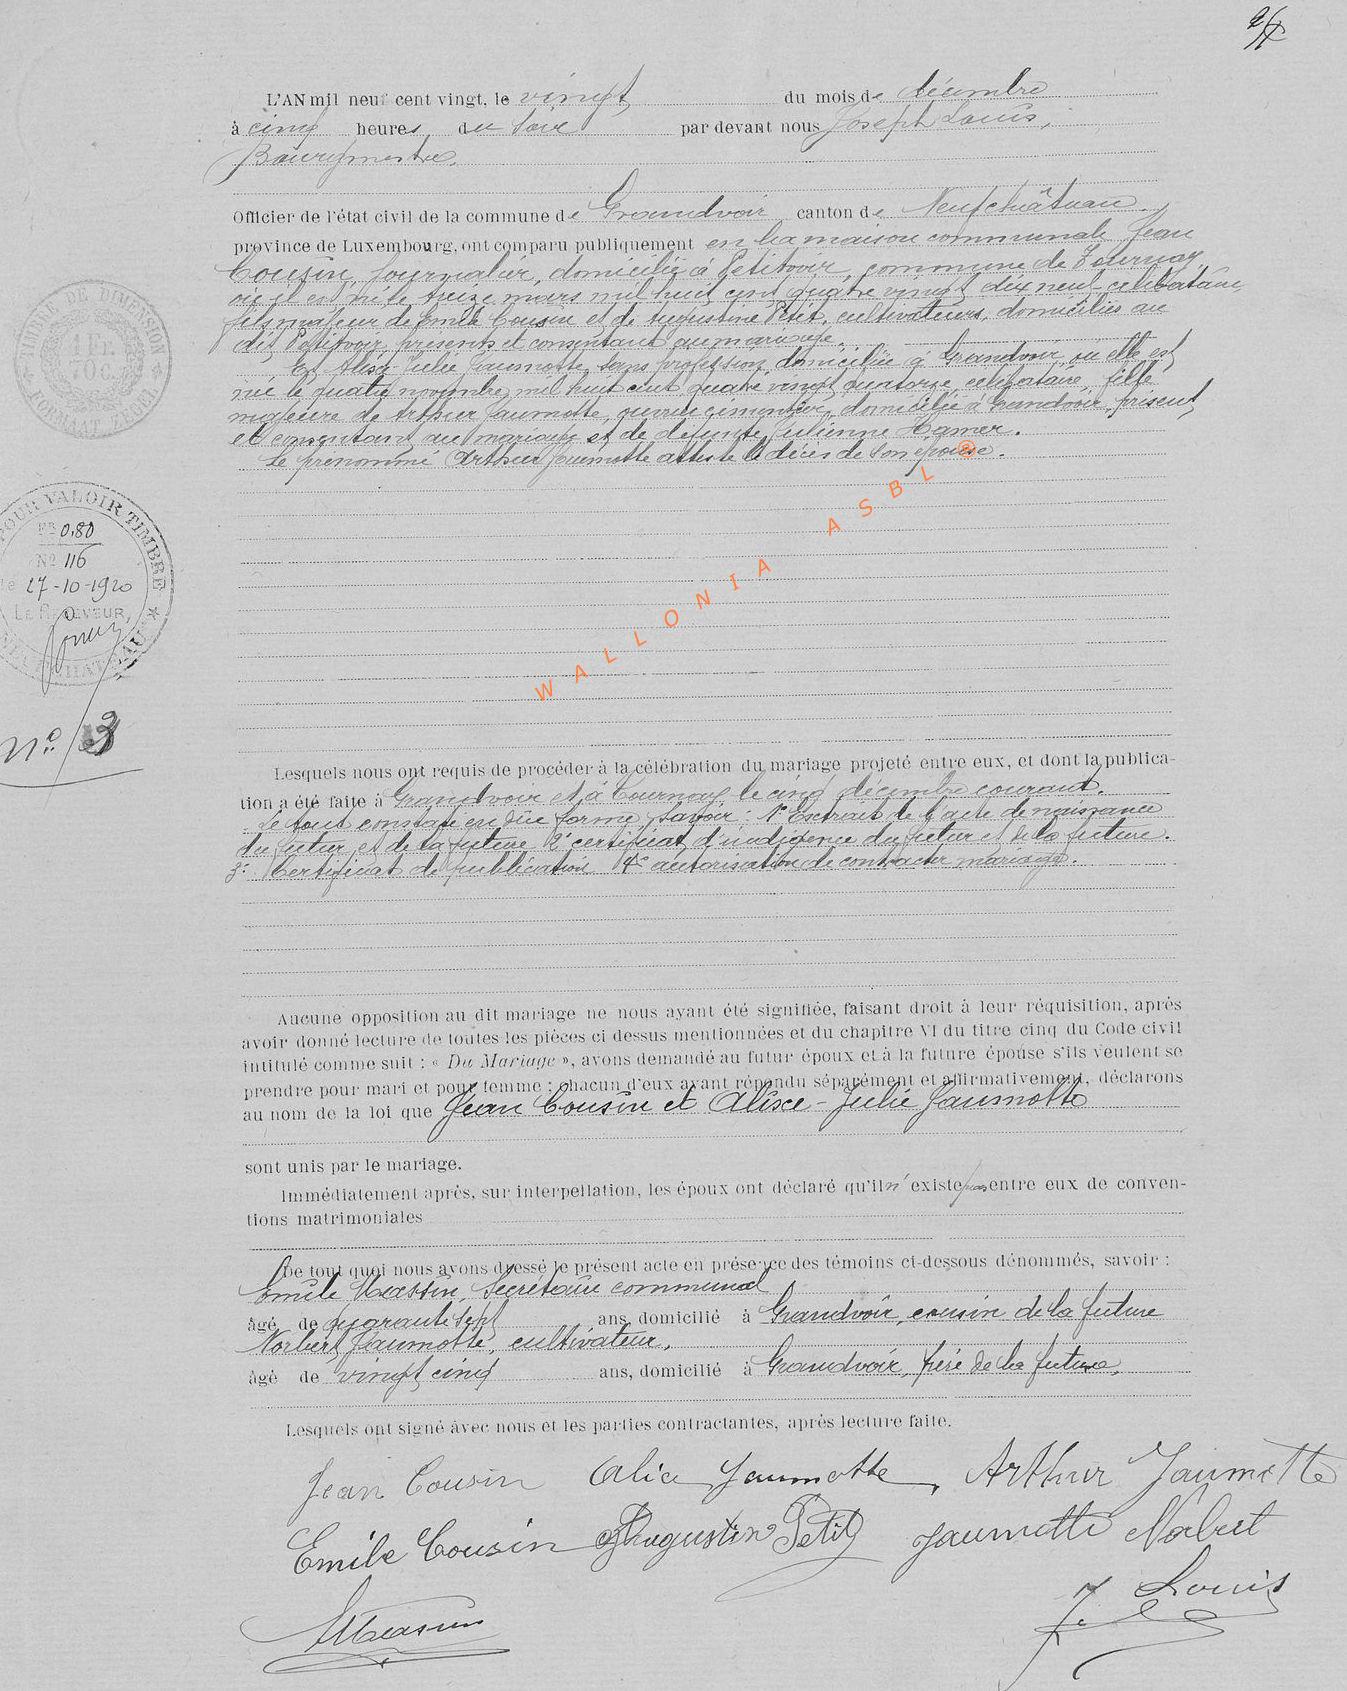 2/X
L'AN mil neuf cent vingt, le vingt du mois de décembre
à cinq heures du soir par devant nous Joseph Louis,
Bourgmestre.
Officier de l'état civil de la commune de Grandvoir canton de Neufchâteau
province de Luxembourg, ont comparu publiquement en la maison communale Jean
Cousin, journalier, domicilié à Petitvoir, commune de Tournay,
où il est né le treize mars mil huit cent quatre vingt dix neuf célibataire
fils majeur de Emile Cousin et de Augustine Petit, cultivateurs, domiciliés au
dit Petitvoir, présents et consentant au mariage.
Et Alise Julie Jaumotte, sans profession, domiciliée à Grandvoir, où elle est
née le quatre novembre mil huit cent quatre vingt quatorze, célibataire, fille
majeure de Arthur Jaumotte, ouvrier cimentier, domicilié à Grandvoir, présent
et consentant au mariage et de défunte Julienne Hamer.
Le prénommé Arthur Jaumotte atteste le décès de son épouse.
TIMBRE DE DIMENSION
1 Fr.
70 C.
FORMAAT ZEGEL
POUR VALOIR TIMBRE
FR 0,80
No 116
le 27-10-1920
LE RECEVEUR,
NEUFCHATEAU
No. 13
WALLONIA ASBL ®
Lesquels nous ont requis de procéder à la célébration du mariage projeté entre eux, et dont la publica-
tion a été faite à Grandvoir et à Tournay le cinq décembre courant.
Le tout constaté en due forme, savoir: 1° Extrait de l'acte de naissance
du futur et de la future 2° certificat d'indigence du futur et de la future.
3° Certificat de publication 4° autorisation de contracter mariage.
Aucune opposition au dit mariage ne nous ayant été signifiée, faisant droit à leur réquisition, après
avoir donné lecture de toutes les pièces ci dessus mentionnées et du chapitre VI du titre cinq du Code civil
intitulé comme suit : « Du Mariage », avons demandé au futur époux et à la future épouse s'ils veulent se
prendre pour mari et pour femme ; chacun d'eux ayant répondu séparément et affirmativement, déclarons
au nom de la loi que Jean Cousin et Alise-Julie Jaumotte
sont unis par le mariage.
Immédiatement après, sur interpellation, les époux ont déclaré qu'il n'existe pas entre eux de conven-
tions matrimoniales
De tout quoi nous avons dressé le présent acte en présence des témoins ci-dessous dénommés, savoir :
Emile Massin, Secrétaire communal
âgé de quarante sept ans, domicilié à Grandvoir, cousin de la future
Norbert Jaumotte, cultivateur,
âgé de vingt cinq ans, domicilié à Grandvoir, frère de la future,
Lesquels ont signé avec nous et les parties contractantes, après lecture faite.
Jean Cousin Alice Jaumotte, Arthur Jaumotte
Emile Cousin Augustine Petit Jaumotte Norbert
EMassin J. Louis